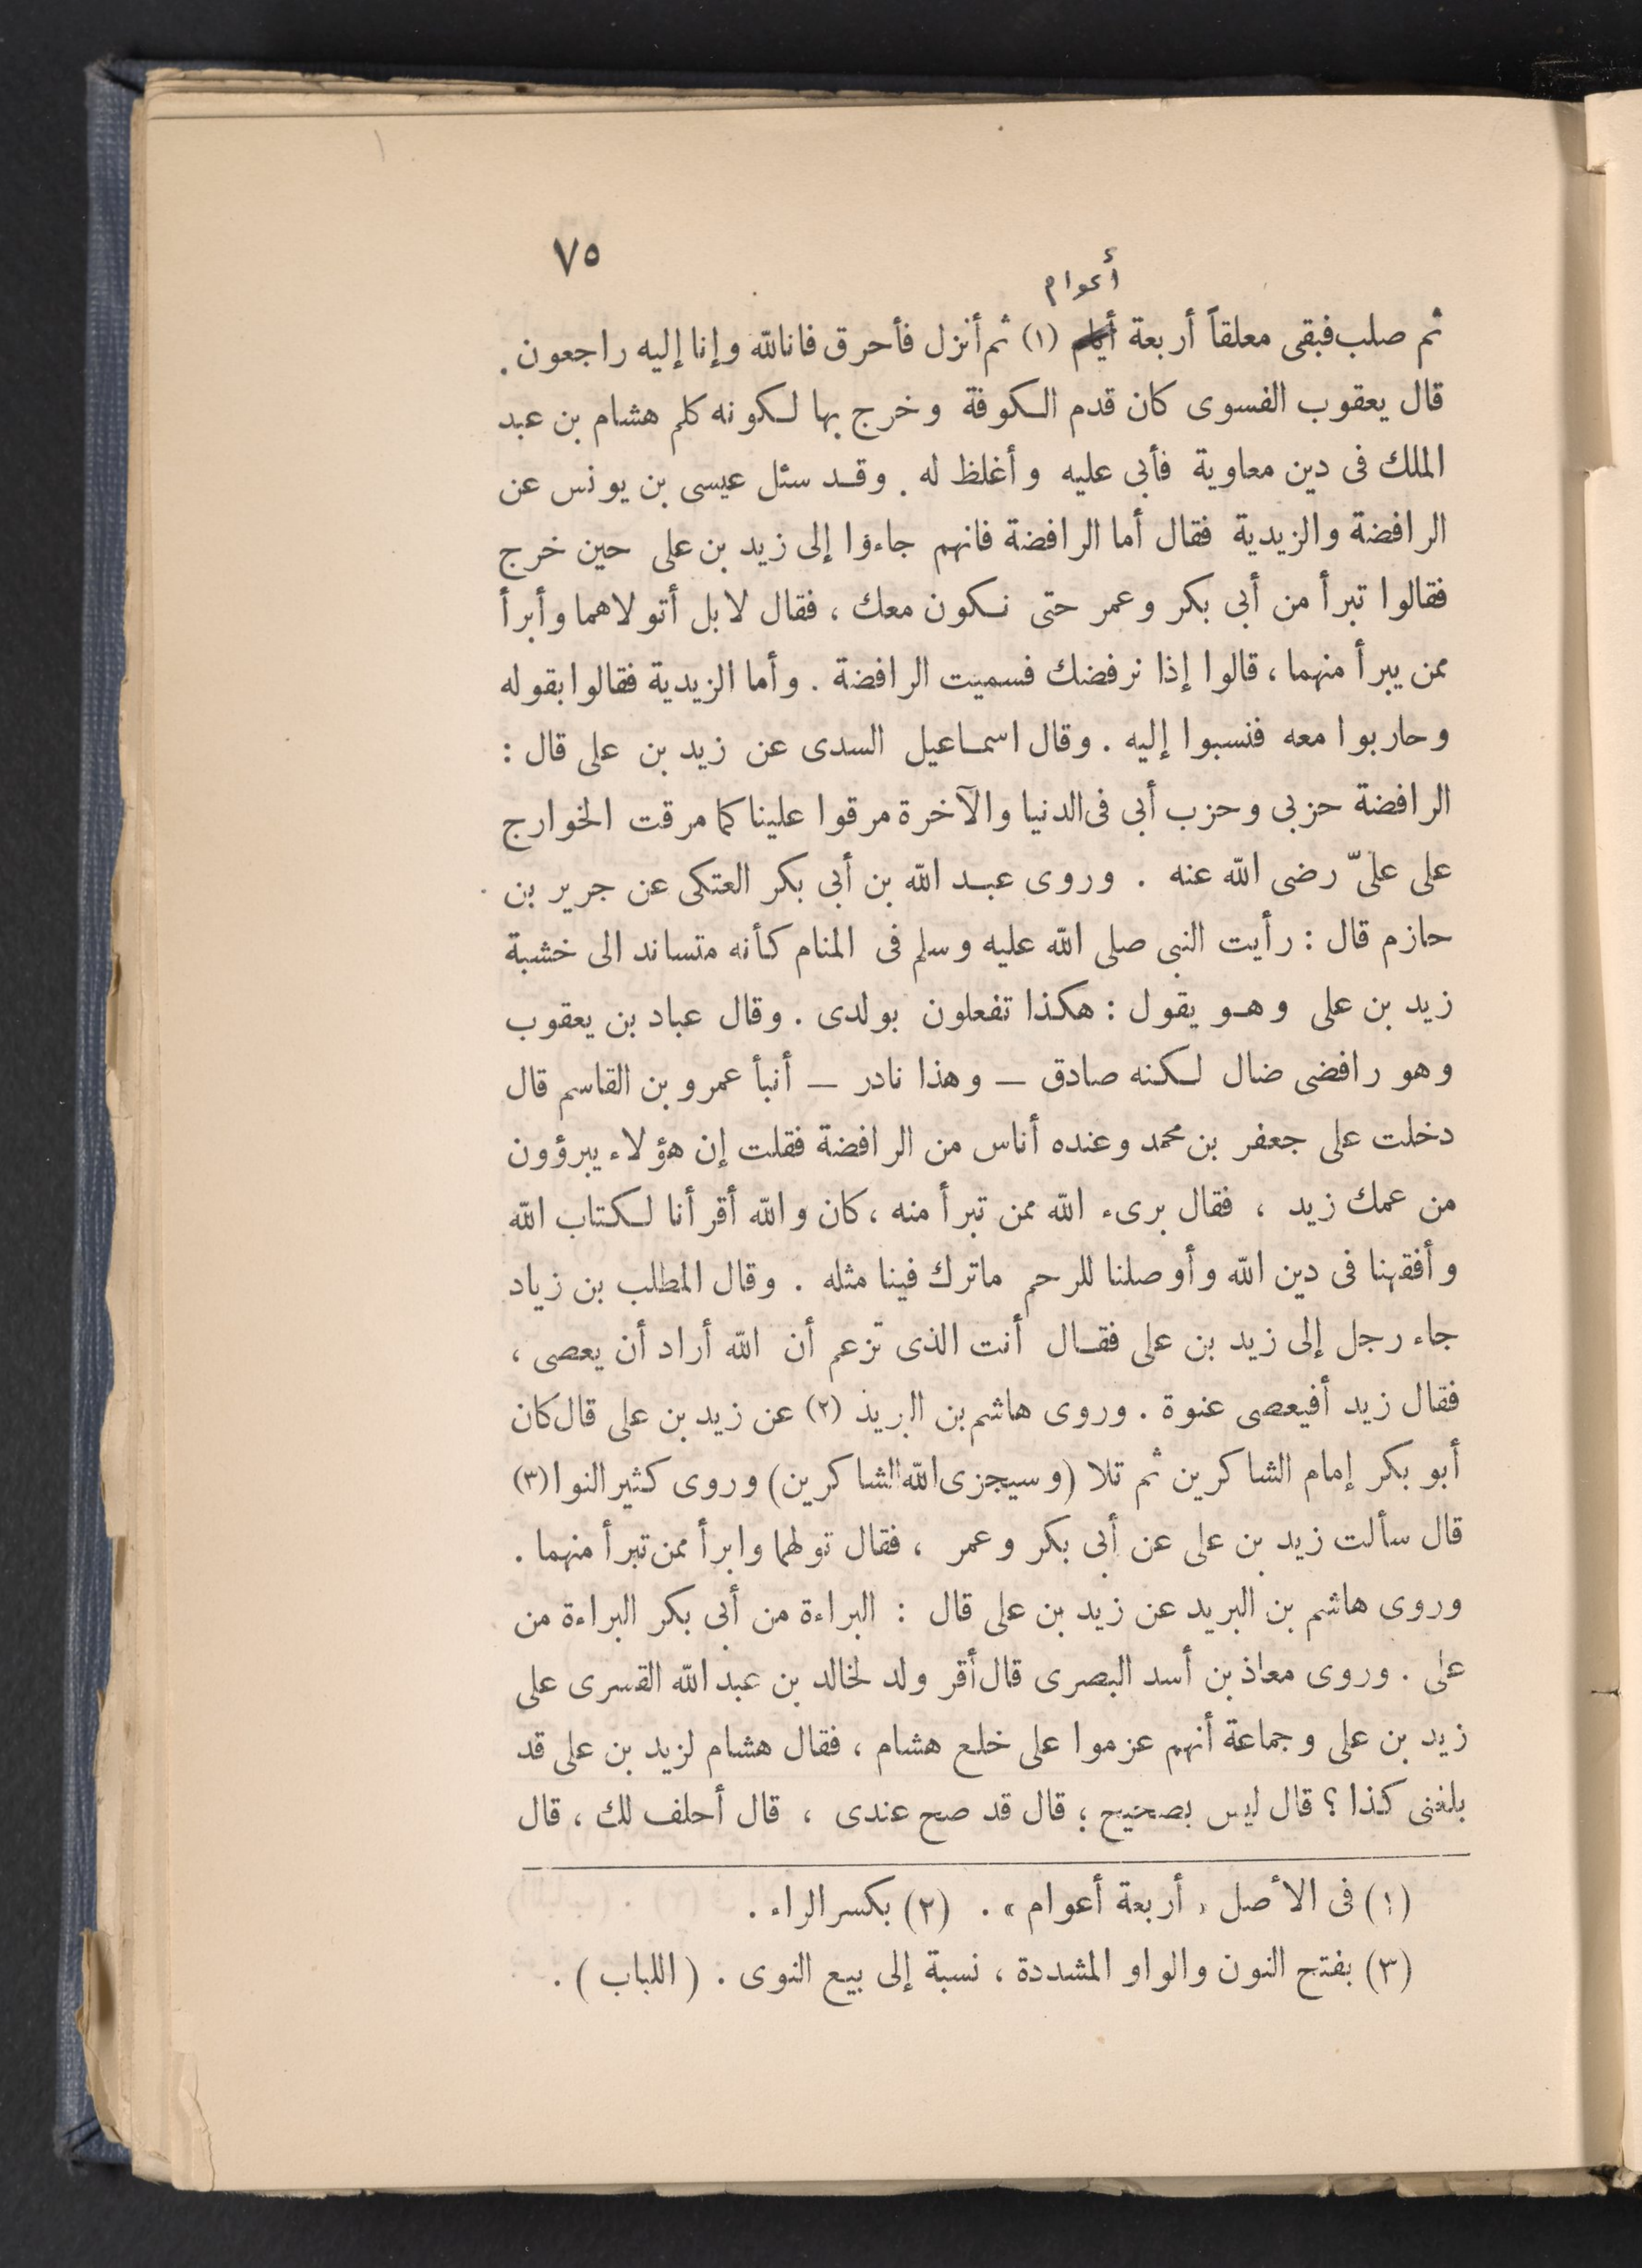 ٧٥
أعوام
ثم صلب فبقى معلقاً أربعة أيام (١) ثم أنزل فأحرق فانالله وإنا إليه راجعون .
قال يعقوب الفسوى كان قدم الكوفة وخرج بها لكونه كلم هشام بن عبد
الملك فى دين معاوية فأبى عليه وأغلظ له . وقد سئل عيسى بن يونس عن
الرافضة والزيدية فقال أما الرافضة فانهم جاءوا إلى زيد بن على حين خرج
فقالوا تبرأ من أبى بكر وعمر حتى نكون معك ، فقال لا بل أتولاهما وأبرأ
ممن يبرأ منهما ، قالوا إذا نرفضك فسميت الرافضة . وأما الزيدية فقالوا بقوله
وحاربوا معه فنسبوا إليه . وقال اسماعيل السدى عن زيد بن على قال :
الرافضة حزبى وحزب أبى فى الدنيا والآخرة مرقوا علينا كما مرقت الخوارج
على علىّ رضى الله عنه . وروى عبد الله بن أبى بكر العتكى عن جرير بن
حازم قال : رأيت النبى صلى الله عليه وسلم فى المنام كأنه متساند الى خشبة
زيد بن على وهو يقول : هكذا تفعلون بولدى . وقال عباد بن يعقوب
وهو رافضى ضال لكنه صادق — وهذا نادر — أنبأ عمرو بن القاسم قال
دخلت على جعفر بن محمد وعنده أناس من الرافضة فقلت إن هؤلاء يبرؤون
من عمك زيد ، فقال برىء الله ممن تبرأ منه ، كان والله أقرأنا لكتاب الله
وأفقهنا فى دين الله وأوصلنا للرحم ماترك فينا مثله . وقال المطلب بن زياد
جاء رجل إلى زيد بن على فقال أنت الذى تزعم أن الله أراد أن يعصى ،
فقال زيد أفيعصى عنوة . وروى هاشم بن البريد (٢) عن زيد بن على قال كان
أبو بكر إمام الشاكرين ثم تلا (وسيجزى الله الشاكرين) وروى كثير النوا (٣)
قال سألت زيد بن على عن أبى بكر وعمر ، فقال تولهما وابرأ ممن تبرأ منهما .
وروى هاشم بن البريد عن زيد بن على قال : البراءة من أبى بكر البراءة من
على . وروى معاذ بن أسد البصرى قال أقر ولد لخالد بن عبد الله القسرى على
زيد بن على وجماعة أنهم عزموا على خلع هشام ، فقال هشام لزيد بن على قد
بلغنى كذا ؟ قال ليس بصحيح ؛ قال قد صح عندى ، قال أحلف لك ، قال
(١) فى الأصل « أربعة أعوام » . (٢) بكسر الراء .
(٣) بفتح النون والواو المشددة ، نسبة إلى بيع النوى . (اللباب) .